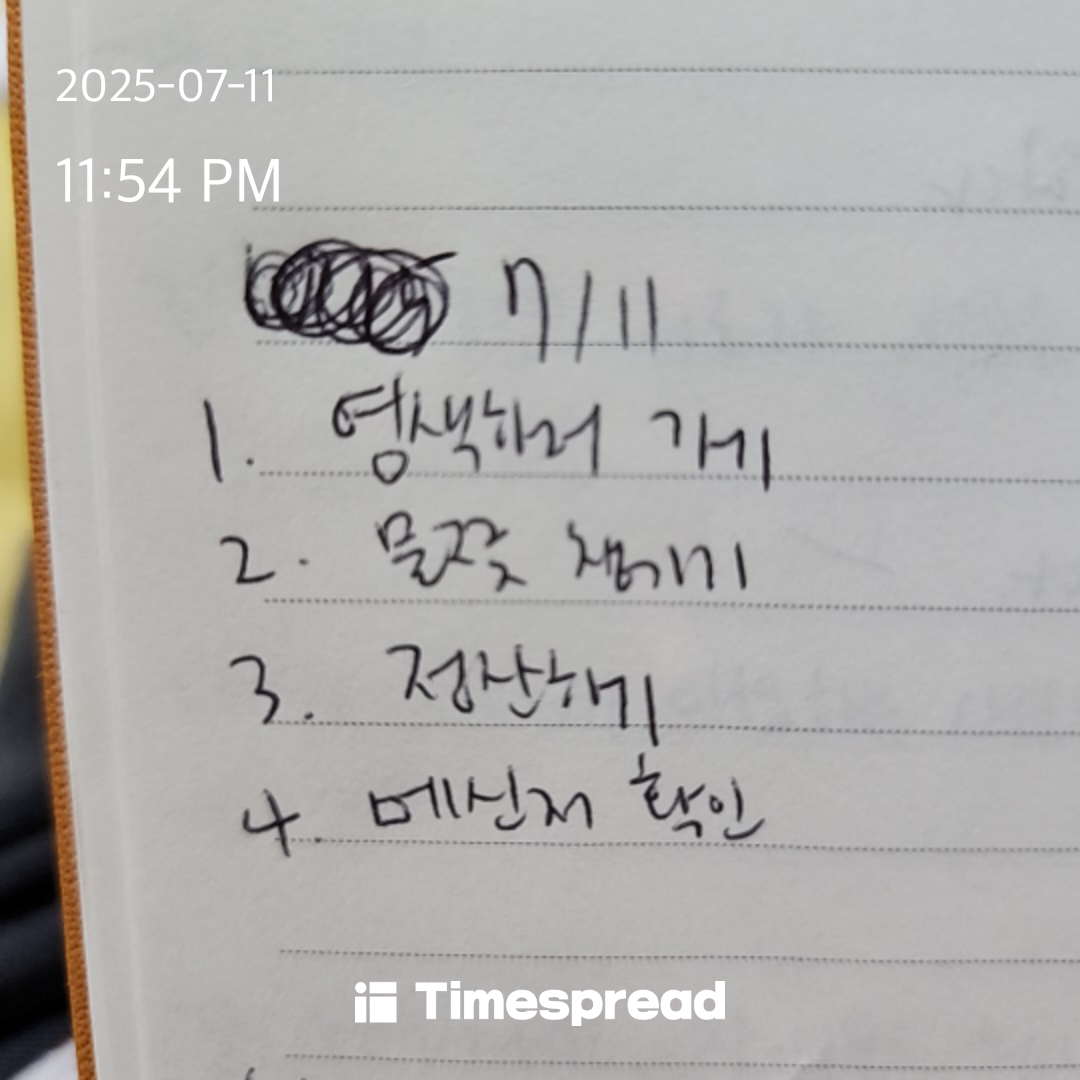 2025-07-11
11:54 PM
7/11
1. 염색하러 가기
2. 물품 챙기기
3. 정산하기
4. 메신저 확인
Timespread